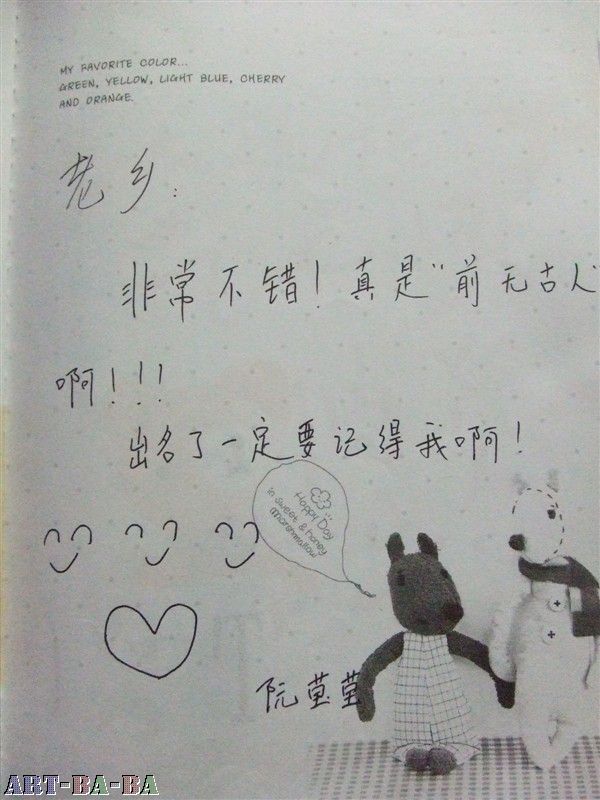 MY FAVORITE COLOR...
GREEN, YELLOW, LIGHT BLUE, CHERRY
AND ORANGE.
老乡:
非常不错!真是“前无古人”
啊!!!
出名了一定要记得我啊!
Happy Day
in sweet & honey
marshmallow
阮莹莹
ART-BA-BA